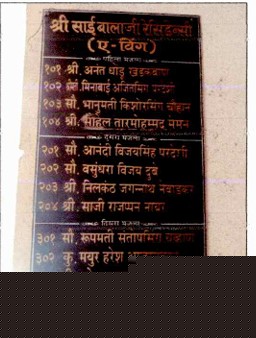 श्री साई बालाजी रेसिडेन्सी
(ए - विंग)
पहिला मजला
१०१ श्री. अनंत धाडु
१०२ मिनाबाई अजितसिंग परदेशी
१०३ सौ. भानुमती किशोरसिंग चौहान
१०४ श्री. साहिल तारमोहम्मद मेमन
दुसरा मजला
२०१ सौ. आनंदी विजयसिंह परदेशी
२०२ सौ. वसुंधरा विजय दुबे
२०३ श्री. निलकंठ जगन्नाथ
२०४ श्री. साजी राजप्पन नायर
तिसरा मजला
३०१ सौ. रूपमती संतापसिंग चव्हाण
३०२ कु. मयुर हरेश